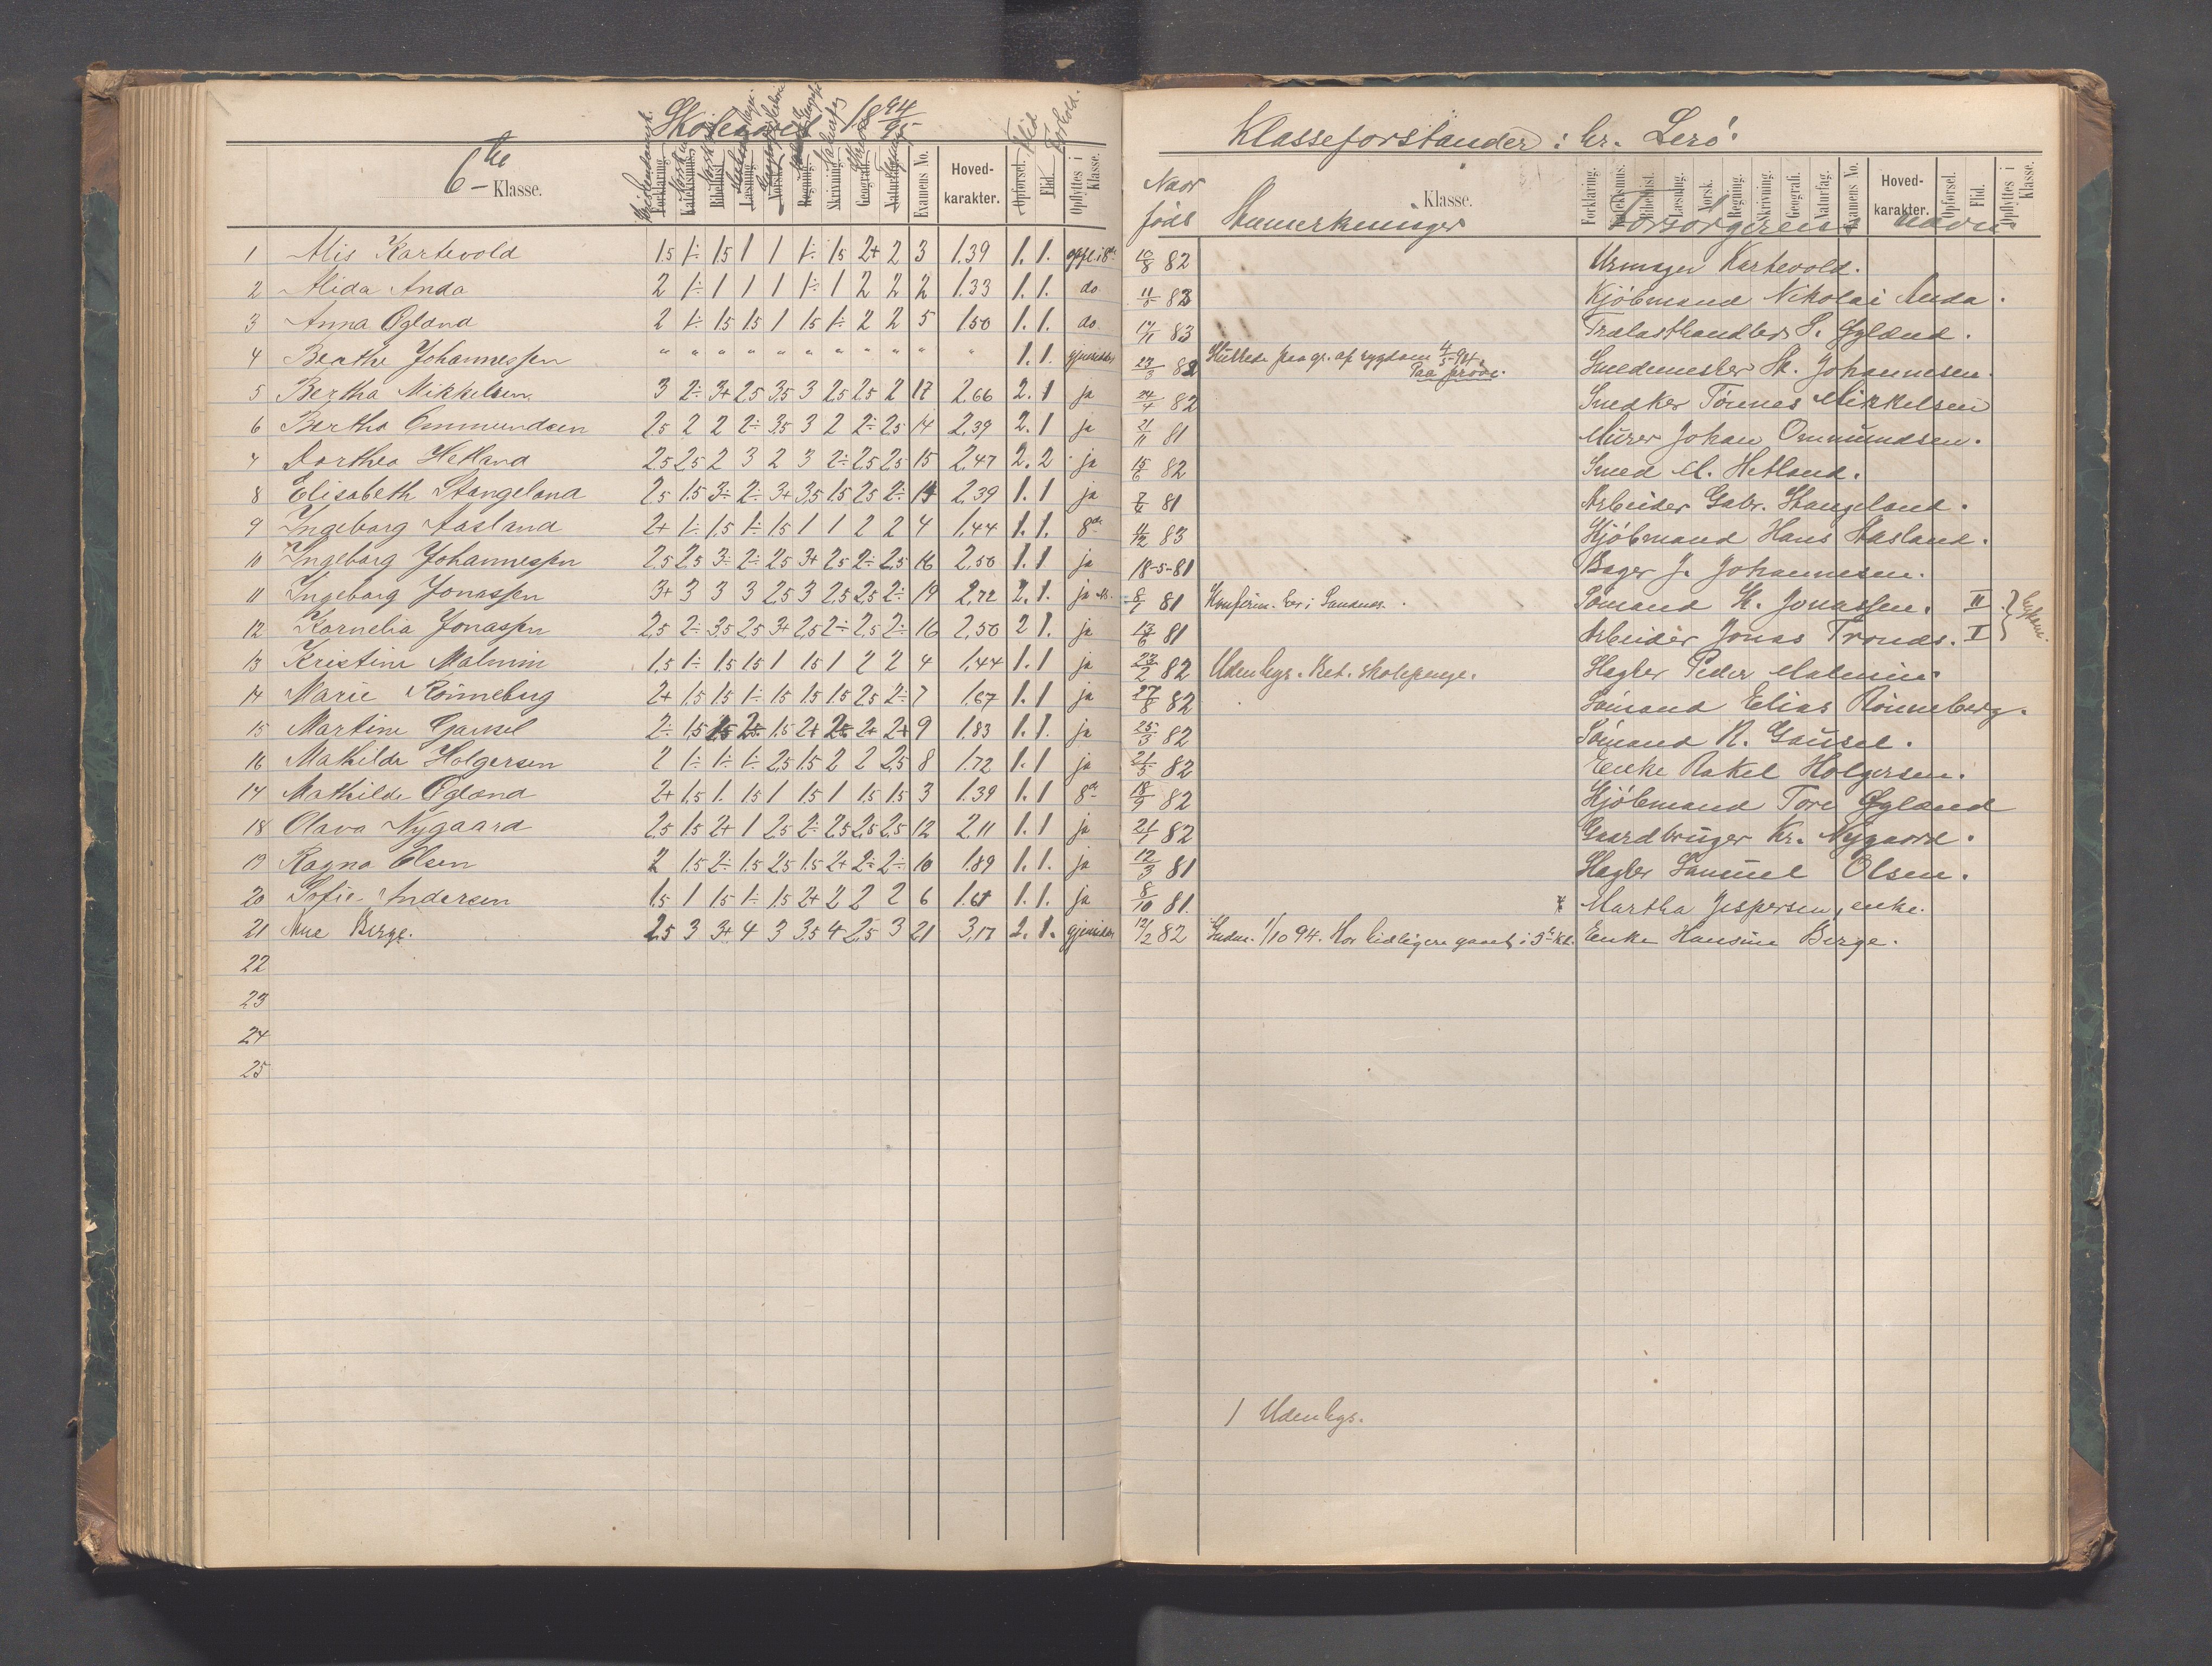 Skoleaaret 18 94/95
6te Klasse.
Forklaring. Katekismus. Bibelhist. Læsning. Norsk. Regning. Skrivning. Geografi. Naturfag. Examens No. Hoved-karakter. Opførsel. Flid. Opflyttes i Klasse.
Flid Forhold.
1 Alis Kartevold 1,5 1÷ 1,5 1 1 1÷ 1,5 2+ 2 3 1.39 1. 1. opfl. i 8de
2 Alida Anda 2 1÷ 1 1 1 1÷ 1 2 2 2 1.33 1. 1. do
3 Anna Øgland 2 1÷ 1,5 1,5 1 1,5 1÷ 2 2 5 1.50 1. 1. do
4 Beathe Johannessen " " " " " " " " " " " 1. 1. gjensidder
5 Bertha Mikkelsen 3 2÷ 3+ 2,5 3,5 3 2,5 2,5 2 17 2,66 2. 1 ja
6 Bertha Ommundsen 2,5 2 2 2÷ 3,5 3 2 2÷ 2,5 14 2,39 2. 1 ja
7 Dorthea Hetland 2,5 2,5 2 3 2 3 2÷ 2,5 2,5 15 2,47 2. 2 ja
8 Elisabeth Stangeland 2,5 1,5 3÷ 2÷ 3+ 3,5 1,5 2,5 2÷ 14 2,39 1. 1 ja
9 Ingeborg Aasland 2+ 1÷ 1,5 1÷ 1,5 1 1 2 2 4 1,44 1. 1. 8de
10 Ingeborg Johannessen 2,5 2,5 3÷ 2÷ 2,5 3+ 2,5 2÷ 2,5 16 2,50 1. 1 ja
11 Ingeborg Jonassen 3+ 3 3 3 2,5 3 2,5 2,5 2÷ 19 2,72 2. 1. ja
12 Kornelia Jonassen 2,5 2÷ 3,5 2,5 3+ 2,5 2÷ 2,5 2÷ 16 2,50 2 1. ja
13 Kristine Malmin 1,5 1÷ 1,5 1,5 1 1,5 1 2 2 4 1.44 1. 1 ja
14 Marie Rønneberg 2+ 1,5 1,5 1÷ 1,5 1,5 1,5 2,5 2÷ 7 1,67 1. 1 ja
15 Martine Gausel 2÷ 1,5 1,5 2÷ 1,5 2+ 2÷ 2+ 2+ 9 1.83 1. 1. ja
16 Mathilde Holgersen 2 1÷ 1÷ 1÷ 2,5 1,5 2 2 2,5 8 1.72 1. 1 ja
17 Mathilde Øgland 2+ 1,5 1. 1,5 1 1,5 1 1,5 1,5 3 1.39 1. 1 8de
18 Olava Nygaard 2,5 1,5 2+ 1 2,5 2÷ 2,5 2,5 2,5 12 2,11 1. 1 ja
19 Ragna Olsen 2 1,5 2÷ 1,5 2,5 1,5 2+ 2÷ 2÷ 10 1.89 1. 1. ja
20 Sofie Andersen 1,5 1 1,5 1÷ 1,5 2+ 2 2 2 6 1.61 1. 1. ja
21 Ane Berge. 2,5 3 3+ 4 3 3,5 4 2,5 3 21 3,17 2. 1. gjensidder
22
23
24
25
Klasseforstander: br. Lerø.
Naar født
Anmerkninger
Klasse.
Forklaring. Katekismus. Bibelhist. Læsning. Norsk. Regning. Skrivning. Geografi. Naturfag. Examens No. Hoved-karakter. Opførsel. Flid. Opflyttes i Klasse.
Forsørgerens navn
10/8 82 Urmager Kartevold.
11/8 83 Kjøbmand Nikolai Anda.
17/1 83 Trælasthandler S. Øgland.
23/3 82 Sluttede paa gr. af sygdom 4/5 94. Paa prøve. Smedemester St. Johannesen.
24/4 82 Snedker Tönnes Mikkelsen
21/11 81 Murer Johan Ommundsen.
15/6 82 Smed M. Hetland.
81 Arbeider Gabr. Stangeland.
11/12 83 Kjøbmand Hans Aasland.
18-5-81 Bager J. Johannesen.
8/1 81 Konfirm. her i Sandnes. Sømand K. Jonassen. II
13/6 81 Arbeider Jonas Tronds. I
23/2 82 Udenbys. Bet. skolepenge. Hagler Peder Malmin.
27/8 82 Sømand Elias Rønneberg.
25/3 82 Sømand R. Gausel.
21/5 82 Enke Rakel Holgersen.
18/9 82 Kjøbmand Tore Øgland
21/7 82 Gaardbruger Kr. Nygaard.
12/3 81 Hagler Samuel Olsen.
8/10 81. Martha Jespersen, enke.
12/2 82 Indm. 1/10 94. Har tidligere gaaet i 5te Kl. Enke Hansine Berge.
1 Udenbys.